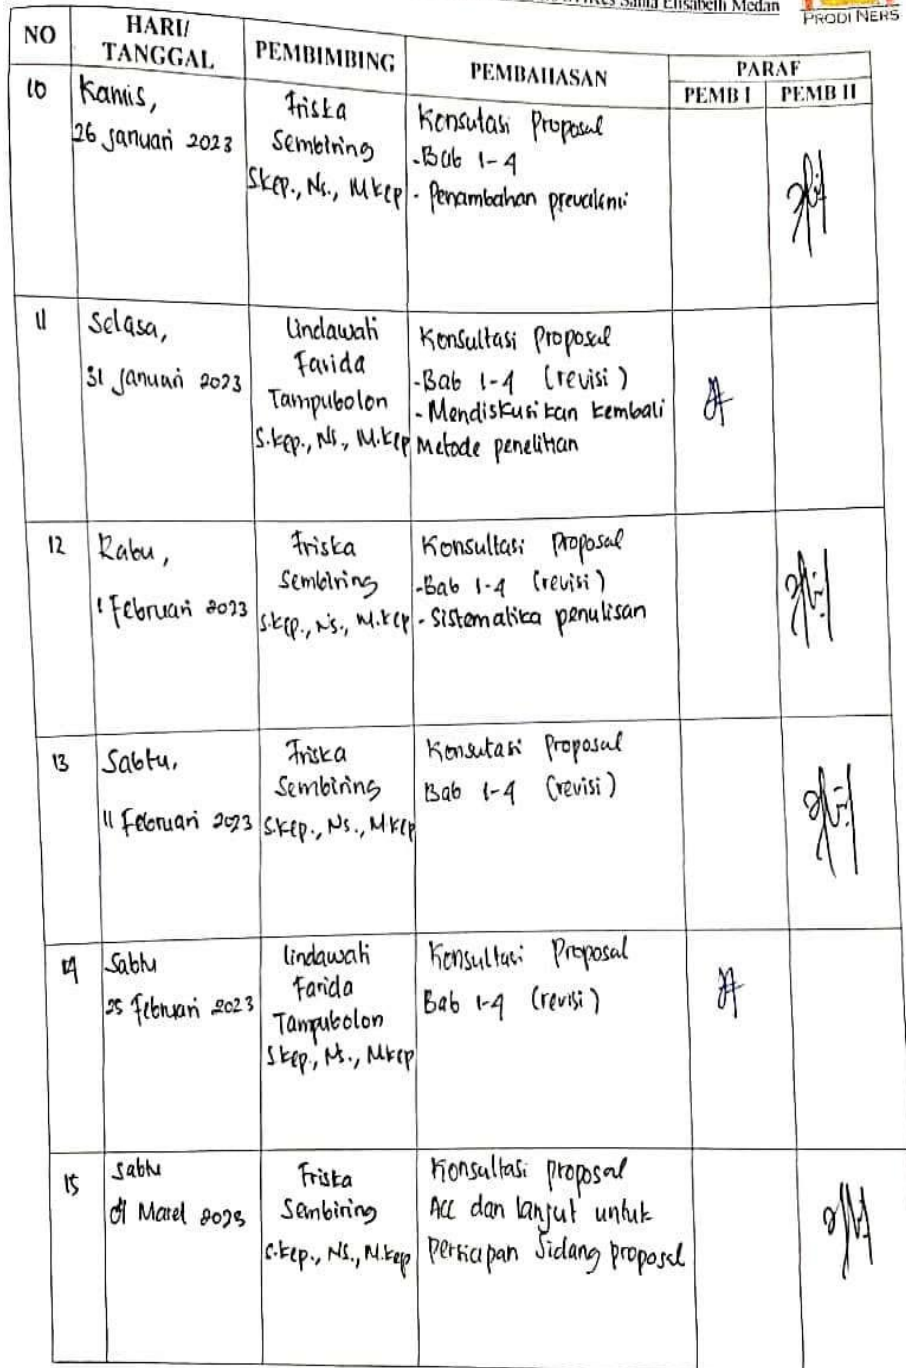 Santa Elisabeth Medan
PRODI NERS
NO
HARI/
TANGGAL
PEMBIMBING
PEMBAHASAN
PARAF
PEMB I
PEMB II
10
Kamis,
26 Januari 2023
Friska
Sembiring
Skep., Ns., Mkep
Konsutasi Proposal
-Bab 1-4
- Penambahan prevalensi
11
Selasa,
31 Januari 2023
Lindawati
Farida
Tampubolon
S.kep., Ns., M.kep
Konsultasi Proposal
-Bab 1-4 (revisi)
- Mendiskusikan kembali
Metode penelitian
12
Rabu,
1 Februari 2023
Friska
Sembiring
S.kep., Ns., M.kep
Konsultasi Proposal
-Bab 1-4 (revisi)
- Sistematika penulisan
13
Sabtu,
11 Februari 2023
Friska
Sembiring
S.kep., Ns., Mkep
Konsutasi Proposal
Bab 1-4 (revisi)
14
Sabtu
25 Februari 2023
Lindawati
Farida
Tampubolon
Skep., Ns., Mkep
Konsultasi Proposal
Bab 1-4 (revisi)
15
Sabtu
Maret 2023
Friska
Sembiring
S.kep., Ns., M.kep
Konsultasi proposal
Acc dan lanjut untuk
Persiapan Sidang proposal